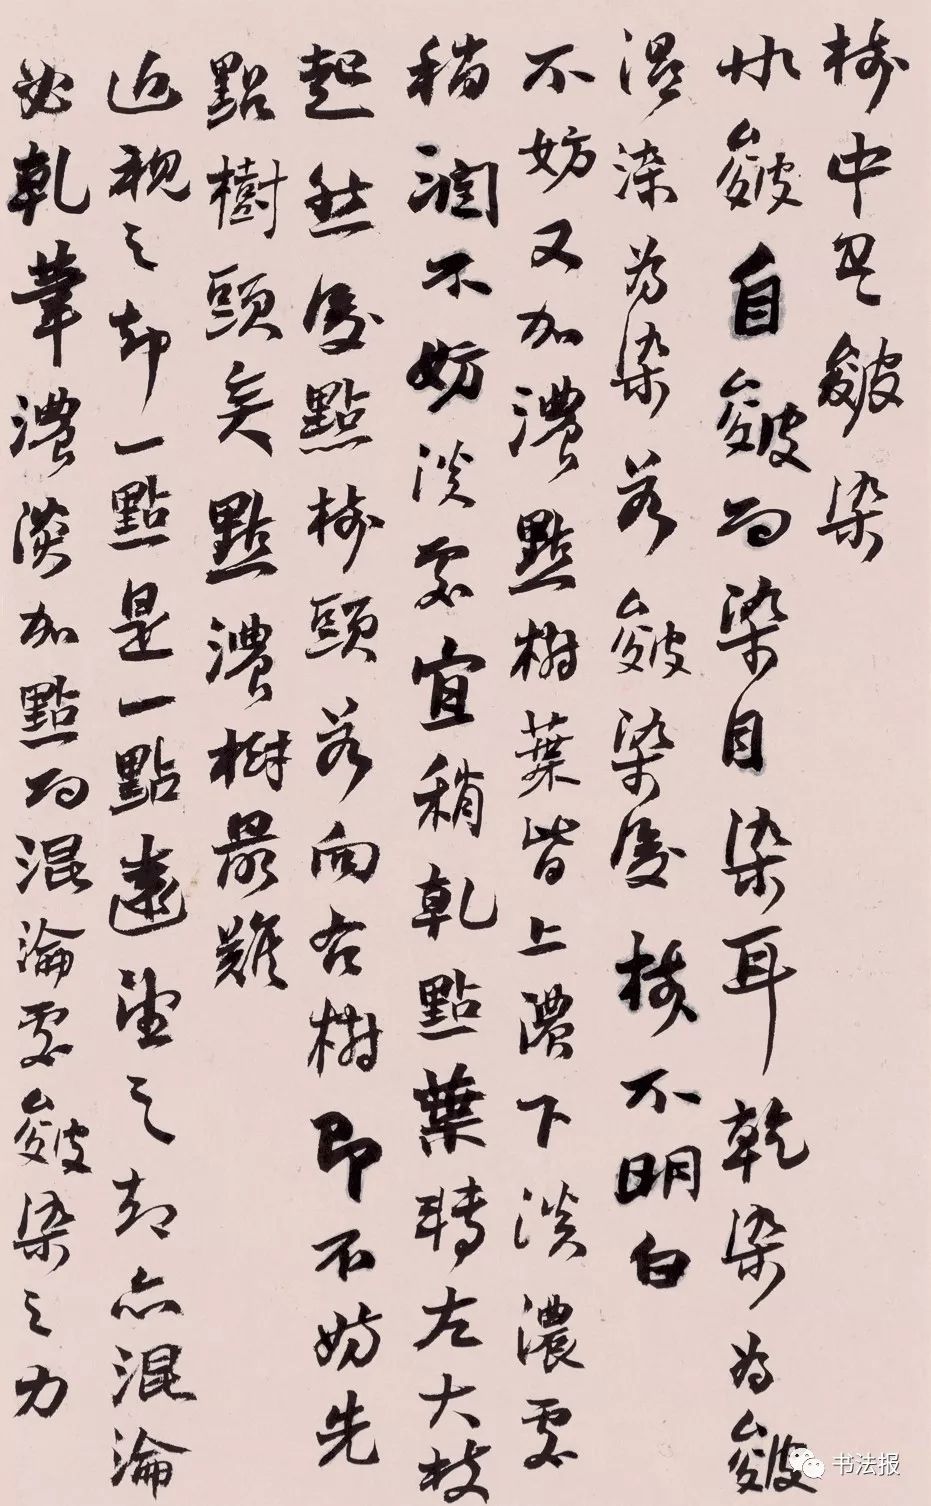 樹中是皴染
州皴自皴而染自染耳乾染為皴
濕染為染若皴染後枝不明白
不妨又加濃點樹葉皆上濃下淡濃處
稍潤不妨淡處宜稍乾點葉轉左大枝
起然後點樹頭若向右樹即不妨先
點樹頭矣點濃樹最難
近視之却一點是一點遠望之却亦混淪
必乾筆濃淡加點而混淪處皴染之力
书法报